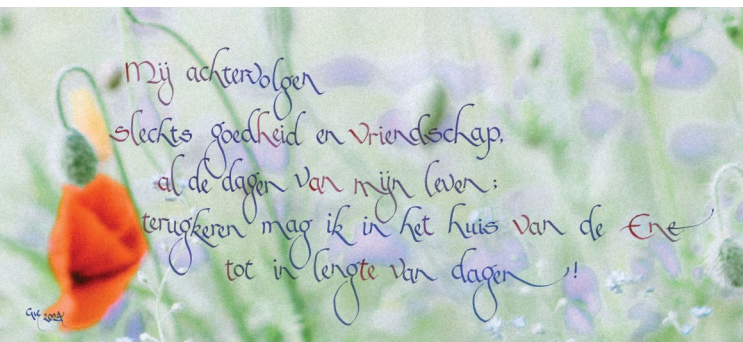 Mij achtervolgen
slechts goedheid en vriendschap,
al de dagen van mijn leven;
terugkeren mag ik in het huis van de Ene
tot in lengte van dagen!
2024